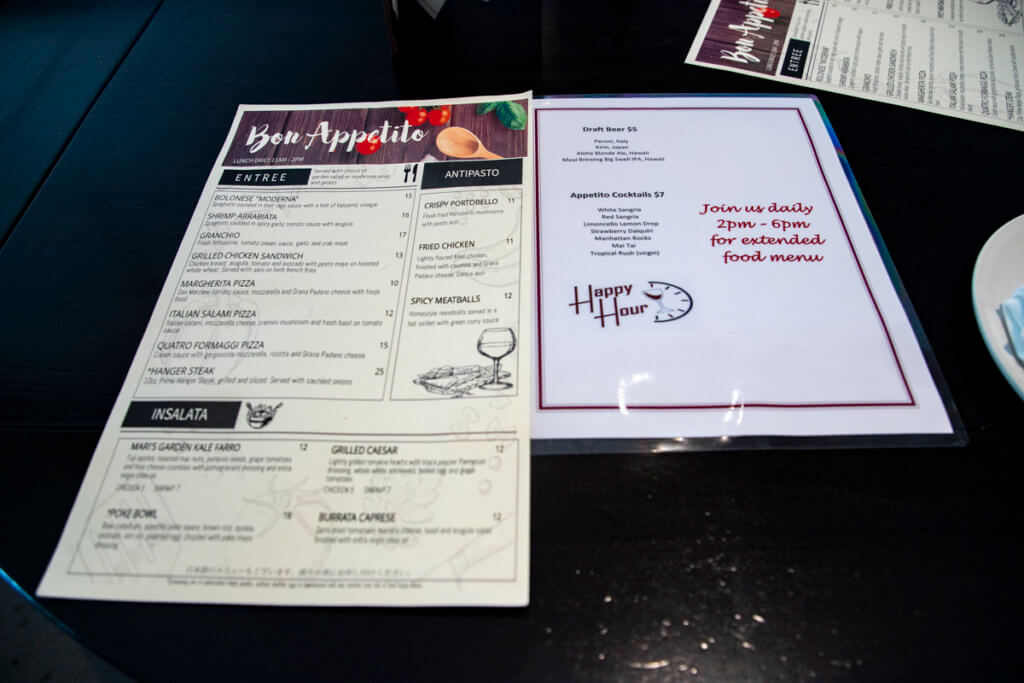 Bon Appetito
LUNCH DAILY 11AM - 2PM
ENTREE
Served with choice of
garden salad or mushroom soup
and gelato
BOLONESE "MODERNA" 15
Spaghetti sautéed in beef ragu sauce with a hint of balsamic vinegar
SHRIMP ARRABIATA 16
Spaghetti sautéed in spicy garlic tomato sauce with arugula
GRANCHIO 17
Fresh fettuccine, tomato cream sauce, garlic and crab meat
GRILLED CHICKEN SANDWICH 13
Chicken breast, arugula, tomato and avocado with pesto mayo on toasted
whole wheat. Served with skin on herb french fries
MARGHERITA PIZZA 10
San Marzano tomato sauce, mozzarella and Grana Padano cheese with fresh
basil
ITALIAN SALAMI PIZZA 12
Italian salami, mozzarella cheese, cremini mushroom and fresh basil on tomato
sauce
QUATRO FORMAGGI PIZZA 15
Cream sauce with gorgonzola mozzarella, ricotta and Grana Padano cheese
*HANGER STEAK 25
10oz Prime Hanger Steak, grilled and sliced. Served with sautéed onions
ANTIPASTO
CRISPY PORTOBELLO 11
Flash fried Portobello mushrooms
with pesto aioli
FRIED CHICKEN 11
Lightly floured fried chicken,
finished with cayenne and Grana
Padano cheese, Garlic aioli
SPICY MEATBALLS 12
Homestyle meatballs served in a
hot skillet with green curry sauce
INSALATA
MARI'S GARDEN KALE FARRO 12
Fuji apples, toasted mac nuts, pumpkin seeds, grape tomatoes
and blue cheese crumbles with pomegranate dressing and extra
virgin olive oil
CHICKEN 5 SHRIMP 7
GRILLED CAESAR 12
Lightly grilled romaine hearts with black pepper Parmesan
dressing, whole white anchovies, boiled egg and grape
tomatoes
CHICKEN 5 SHRIMP 7
*POKE BOWL 18
BURRATA CAPRESE 12
finished with extra virgin olive oil
Draft Beer $5
Peroni, Italy
Kirin, Japan
Aloha Blonde Ale, Hawaii
Maui Brewing Big Swell IPA, Hawaii
Appetito Cocktails $7
White Sangria
Red Sangria
Limoncello Lemon Drop
Strawberry Daiquiri
Manhattan Rocks
Mai Tai
Tropical Rush (virgin)
Join us daily
2pm - 6pm
for extended
food menu
Happy
Hour
Bon Appetito
ENTREE
BOLONESE "MODERNA"
SHRIMP ARRABIATA
GRANCHIO
GRILLED CHICKEN SANDWICH
MARGHERITA PIZZA
ITALIAN SALAMI PIZZA
QUATRO FORMAGGI PIZZA
*HANGER STEAK